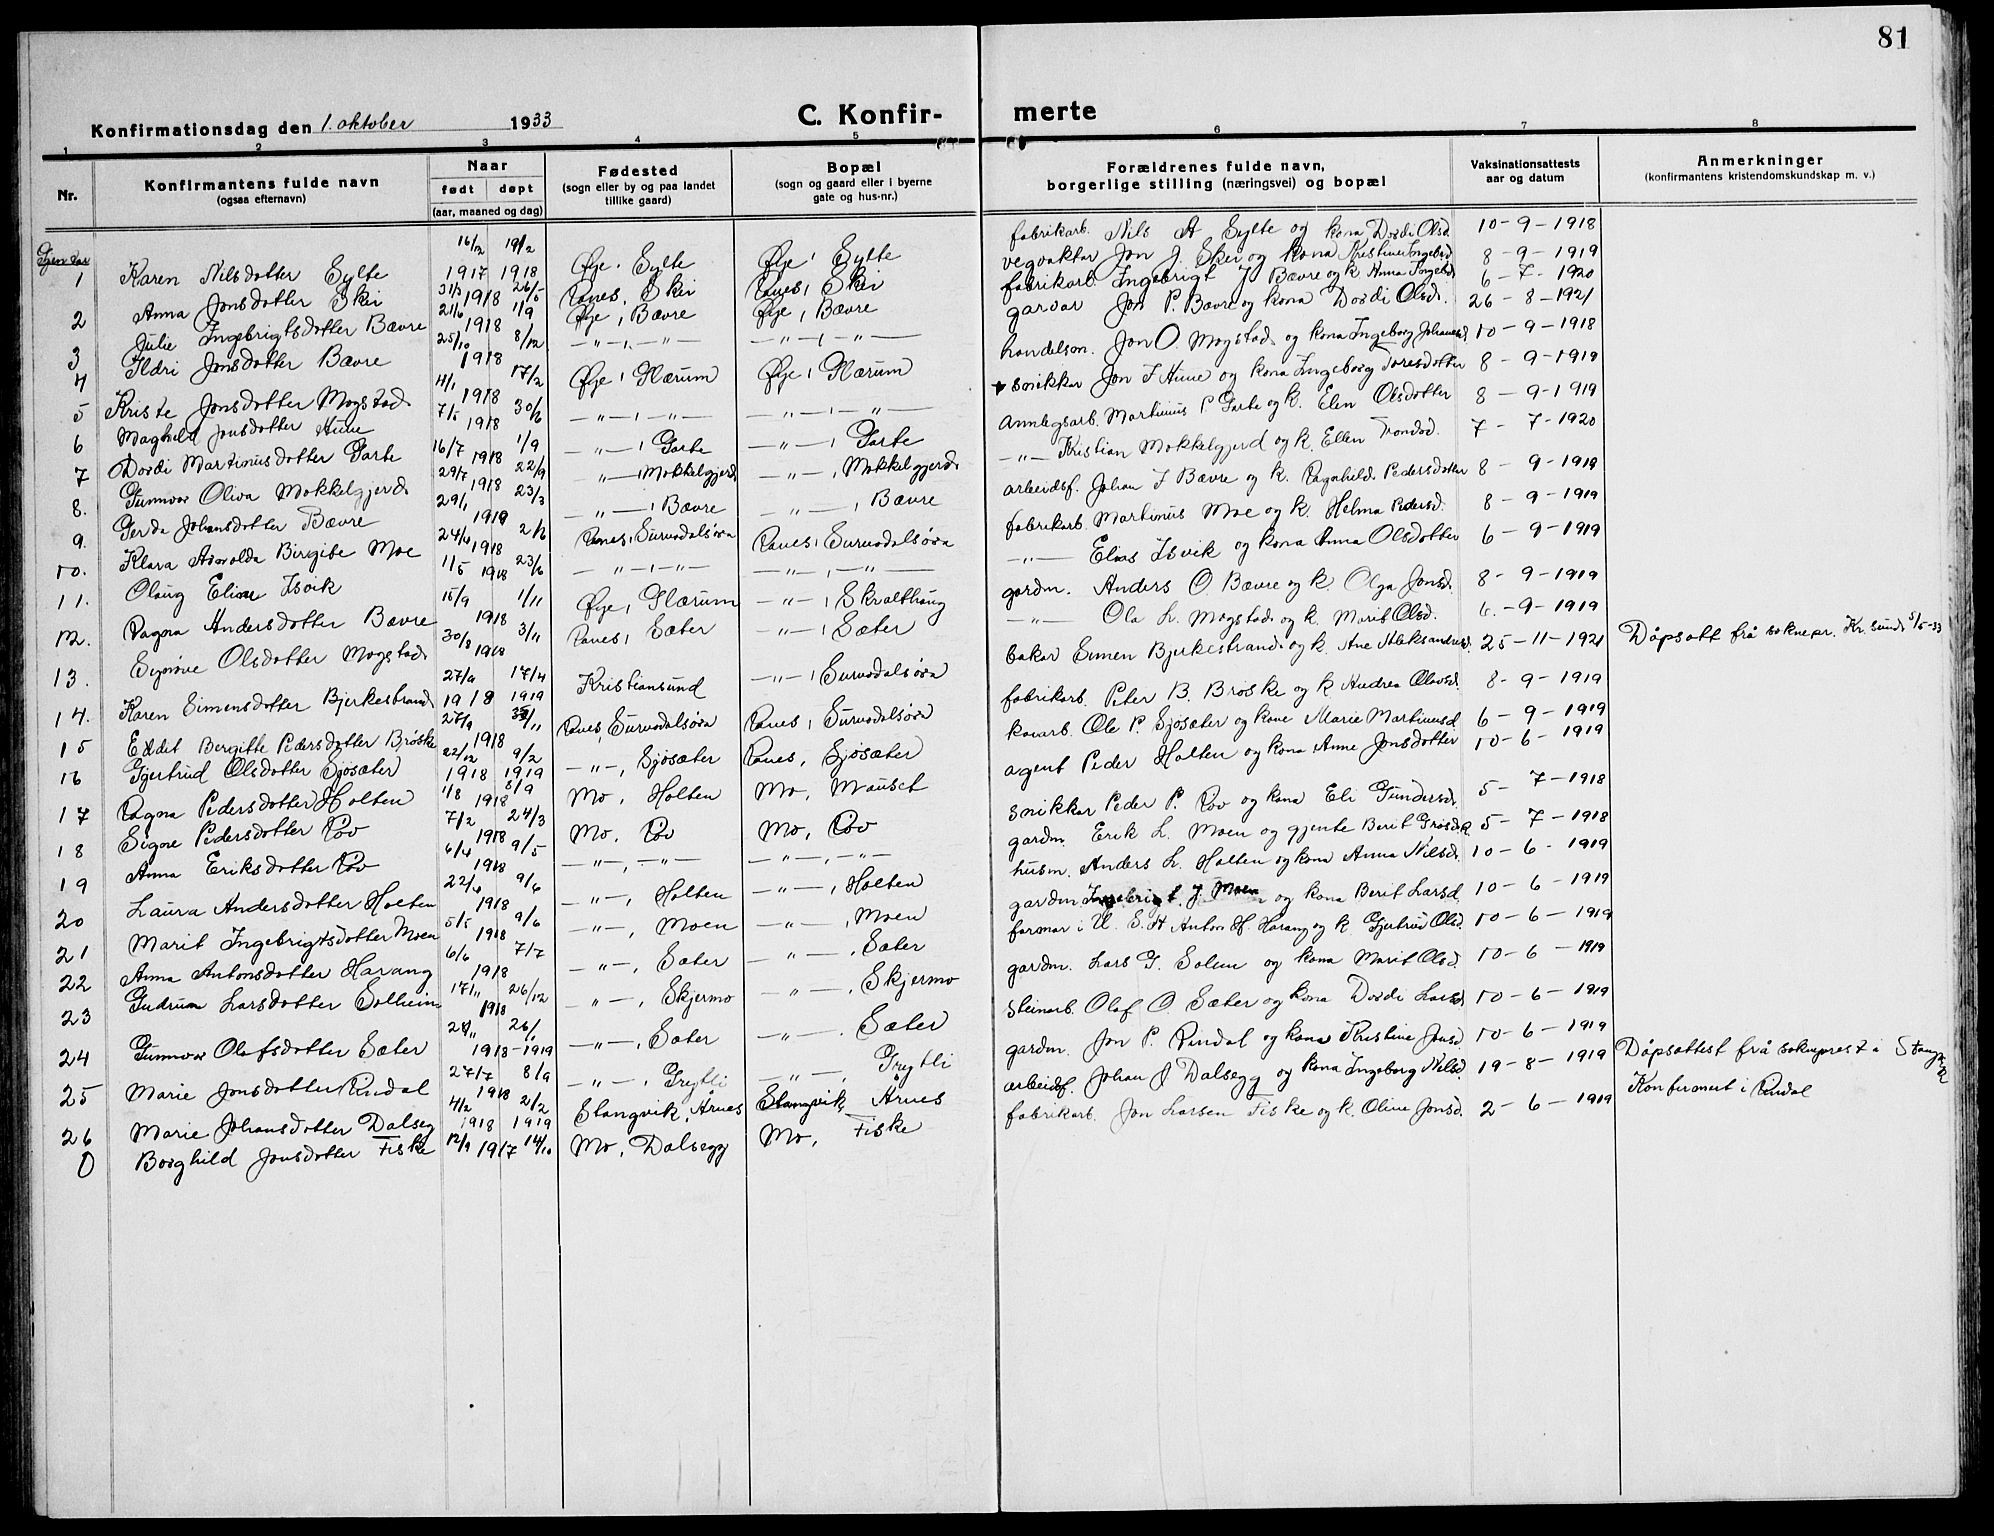 81
Konfirmationsdag den 1. oktober 1933
C. Konfirmerte
1 2 3 4 5 6 7 8
Nr.
Konfirmantens fulde navn
(ogsaa efternavn)
Naar
født døpt
(aar, maaned og dag)
Fødested
(sogn eller by og paa landet
tillike gaard)
Bopæl
(sogn og gaard eller i byerne
gate og hus-nr.)
Forældrenes fulde navn,
borgerlige stilling (næringsvei) og bopæl
Vaksinationsattests
aar og datum
Anmerkninger
(konfirmantens kristendomskundskap m. v.)
1 Karen Nilsdotter Sylte 16/12 1917 19/2 1918 Øye, Sylte Øye, Sylte fabrikarb. Nils A Sylte og kona Dordi Olsd. 10-9-1918
2 Anna Jonsdotter Skei 31/3 1918 26/5 Ranes, Skei Ranes, Skei vegvaktar Jon J. Skei og kona Kristine Ingebrd 8-9-1919
3 Julie Ingebrigtsdotter Bævre 21/6 1918 1/9 Øye, Bævre Øye, Bævre fabrikarb. Ingebrigt J Bævre og k. Anna Ingebd 6-7-1920
4 Ildri Jonsdotter Bævre 25/10 1918 8/12 —"—, —"— —"—, —"— gardar Jon P. Bævre og kona Dordi Olsd. 26-8-1921
5 Kriste Jonsdotter Mogstad 4/1 1918 17/2 Øye, Glærum Øye, Glærum handelsm. Jon O. Mogstad og kona Ingeborg Johansd 10-9-1918
6 Maghild Jonsdotter Hune 7/5 1918 30/6 —"—, —"— —"—, —"— snikkar Jon T Hune og kona Ingeborg Toresdotter 8-9-1919
7 Dordi Martinusdotter Garte 16/7 1918 1/9 —"—, Garte —"—, Garte Anlegsarb. Martinus P Garte og k. Elen Olsdotter 8-9-1919
8. Gunnvor Oliva Mokkelgjerd 29/7 1918 22/9 —"—, Mokkelgjerd —"—, Mokkelgjerd —"— Kristian Mokkelgjerd og k. Ellen Trondsd. 7-7-1920
9. Gerda Johansdotter Bævre 29/1 1919 23/3 —"—, Bævre —"—, Bævre arbeidsf. Johan J Bævre og k. Ragnhild Pedersdotter 8-9-1919
10. Klara Asvalda Birgite Moe 24/4 1918 2/6 Ranes, Surnadalsøra Ranes, Surnadalsøra fabrikarb. Martinus Moe og k. Helma Pedersd. 8-9-1919
11. Olaug Eline Isvik 11/5 1918 23/6 —"—, —"— —"—, —"— —"— Elias Isvik og kona Anna Olsdotter 6-9-1919
12. Ragna Andersdotter Bævre 15/9 1918 1/11 Øye, Glærum —"—, Skralthaug gardm. Anders O. Bævre og k. Olga Jonsd. 8-9-1919
13. Synnøve Olsdotter Mogstad 30/8 1918 3/11 Ranes, Sæter —"—, Sæter —"— Ola L. Mogstad og k. Marit Olsd. 6.-9-1919
14. Karen Simensdotter Bjerkestrand 27/9 1918 17/4 1919 Kristiansund —"—, Surnadalsøra bakar Simen Bjerkestrand og k. Ane Aleksandersd. 25-11-1921 Dåpsatt frå soknepr. Kr.sund 5/5-33
15 Eddit Bergitte Pedersdotter Brøske 27/9 1918 /11 Ranes, Surnadalsøra Ranes, Surnadalsøra fabrikarb. Peter B. Brøske og k Andrea Olavsd. 8-9-1919
16 Gjertrud Olsdotter Sjøsæter 22/12 1918 9/2 1919 —"—, Sjøsæter Ranes, Sjøsæter Ole P. Sjøsæter og kone Marie Martinusd 6-9-1919
17 Ragna Pedersdotter Holten 1/8 1918 8/9 Mo, Holten Mo, Mauset agent Peder Holten og kona Anne Jonsdotter 10-6-1919
18 Signe Pedersdotter Rov 7/2 1918 24/3 Mo, Rov Mo, Rov snikkar Peder P. Rov og kona Eli Gundersd. 5-7-1918
19 Anna Eriksdotter Rov 6/4 1918 9/5 —"—, —"— —"—, —"— gardm. Erik L. Moen og gjente Berit 5-7-1918
20 Laura Andersdotter Holten 22/4 1918 9/6 —"—, Holten —"—, Holten husm. Anders L. Holten og kona Anna Nilsd. 10-6-1919
21 Marit Ingebrigtsdotter Moen 5/5 1918 9/6 —"—, Moen —"—, Moen gardm Ingebrigt J. Moen og kona Berit Larsd. 10-6-1919
22 Anna Antonsdotter Harang 6/6 1918 7/7 —"—, Sæter —"—, Sæter farmar i U. S. A Anton H. Harang og k Gjertrud Olsd. 10-6-1919
23 Gudrun Larsdotter Solheim 17/11 1918 26/12 —"—, Skjermo —"—, Skjermo gardm. Lars G. Solem og kona Marit Olsd. 10-6-1919
24 Gunnvor Olafsdotter Sæter 24/11 1918-1919 26/1 —"—, Sæter —"—, Sæter Steinarb. Olaf O. Sæter og kona Dordi Larsd 10-6-1919
25 Marie Jonsdotter Rindal 27/7 1918 8/9 —"—, Grytli —"—, Grytli gardm. Jon P. Rindal og kona Kristine Jonsd. 10-6-1919
26 Marie Johansdotter Dalseg 4/2 1918 2/2 1919 Stangvik, Årnes Stangvik, Årnes arbeidsf. Johan J Dalsegg og kona Ingeborg Nilsd. 19-8-1919 Dåpsattest frå sokneprest i Stangvik
0 Borghild Jonsdotter Fiske 12/9 1917 14/10 Mo, Dalsegg Mo, Fiske fabrikarb. Jon Larsen Fiske og k. Oline Jonsd. 2-6-1919 Konfirmert i Rindal